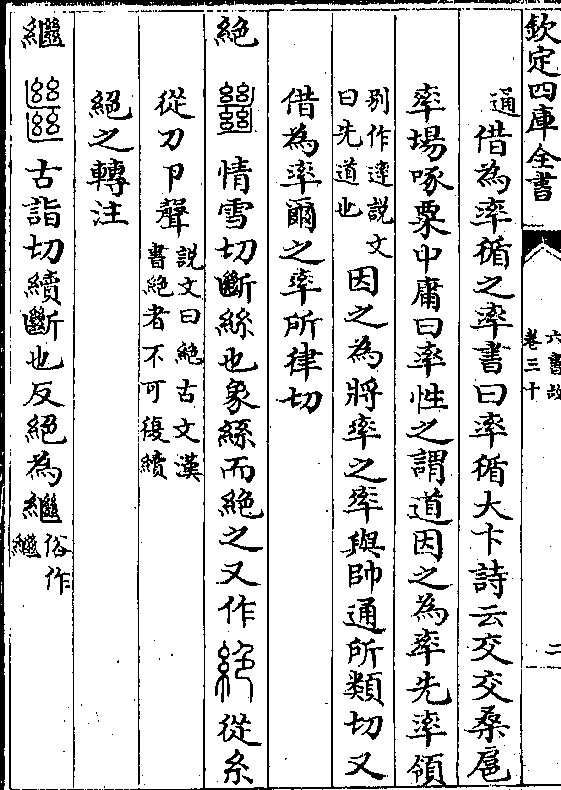 欽定四庫全書
六書故
卷三十
二
通
借為率循之率書曰率循大卞詩云交交桑扈
率場啄粟中庸曰率性之謂道因之為率先率領
別作逹説文
曰先道也
因之為將率之率與帥通所類切又
借為率爾之率所律切
絶
情雪切斷絲也象絲而絶之又作
從糸
從刀卪聲
説文曰絶古文漢
書絶者不可復續
絕之轉注
繼
古詣切續斷也反絕為繼
俗作
繼